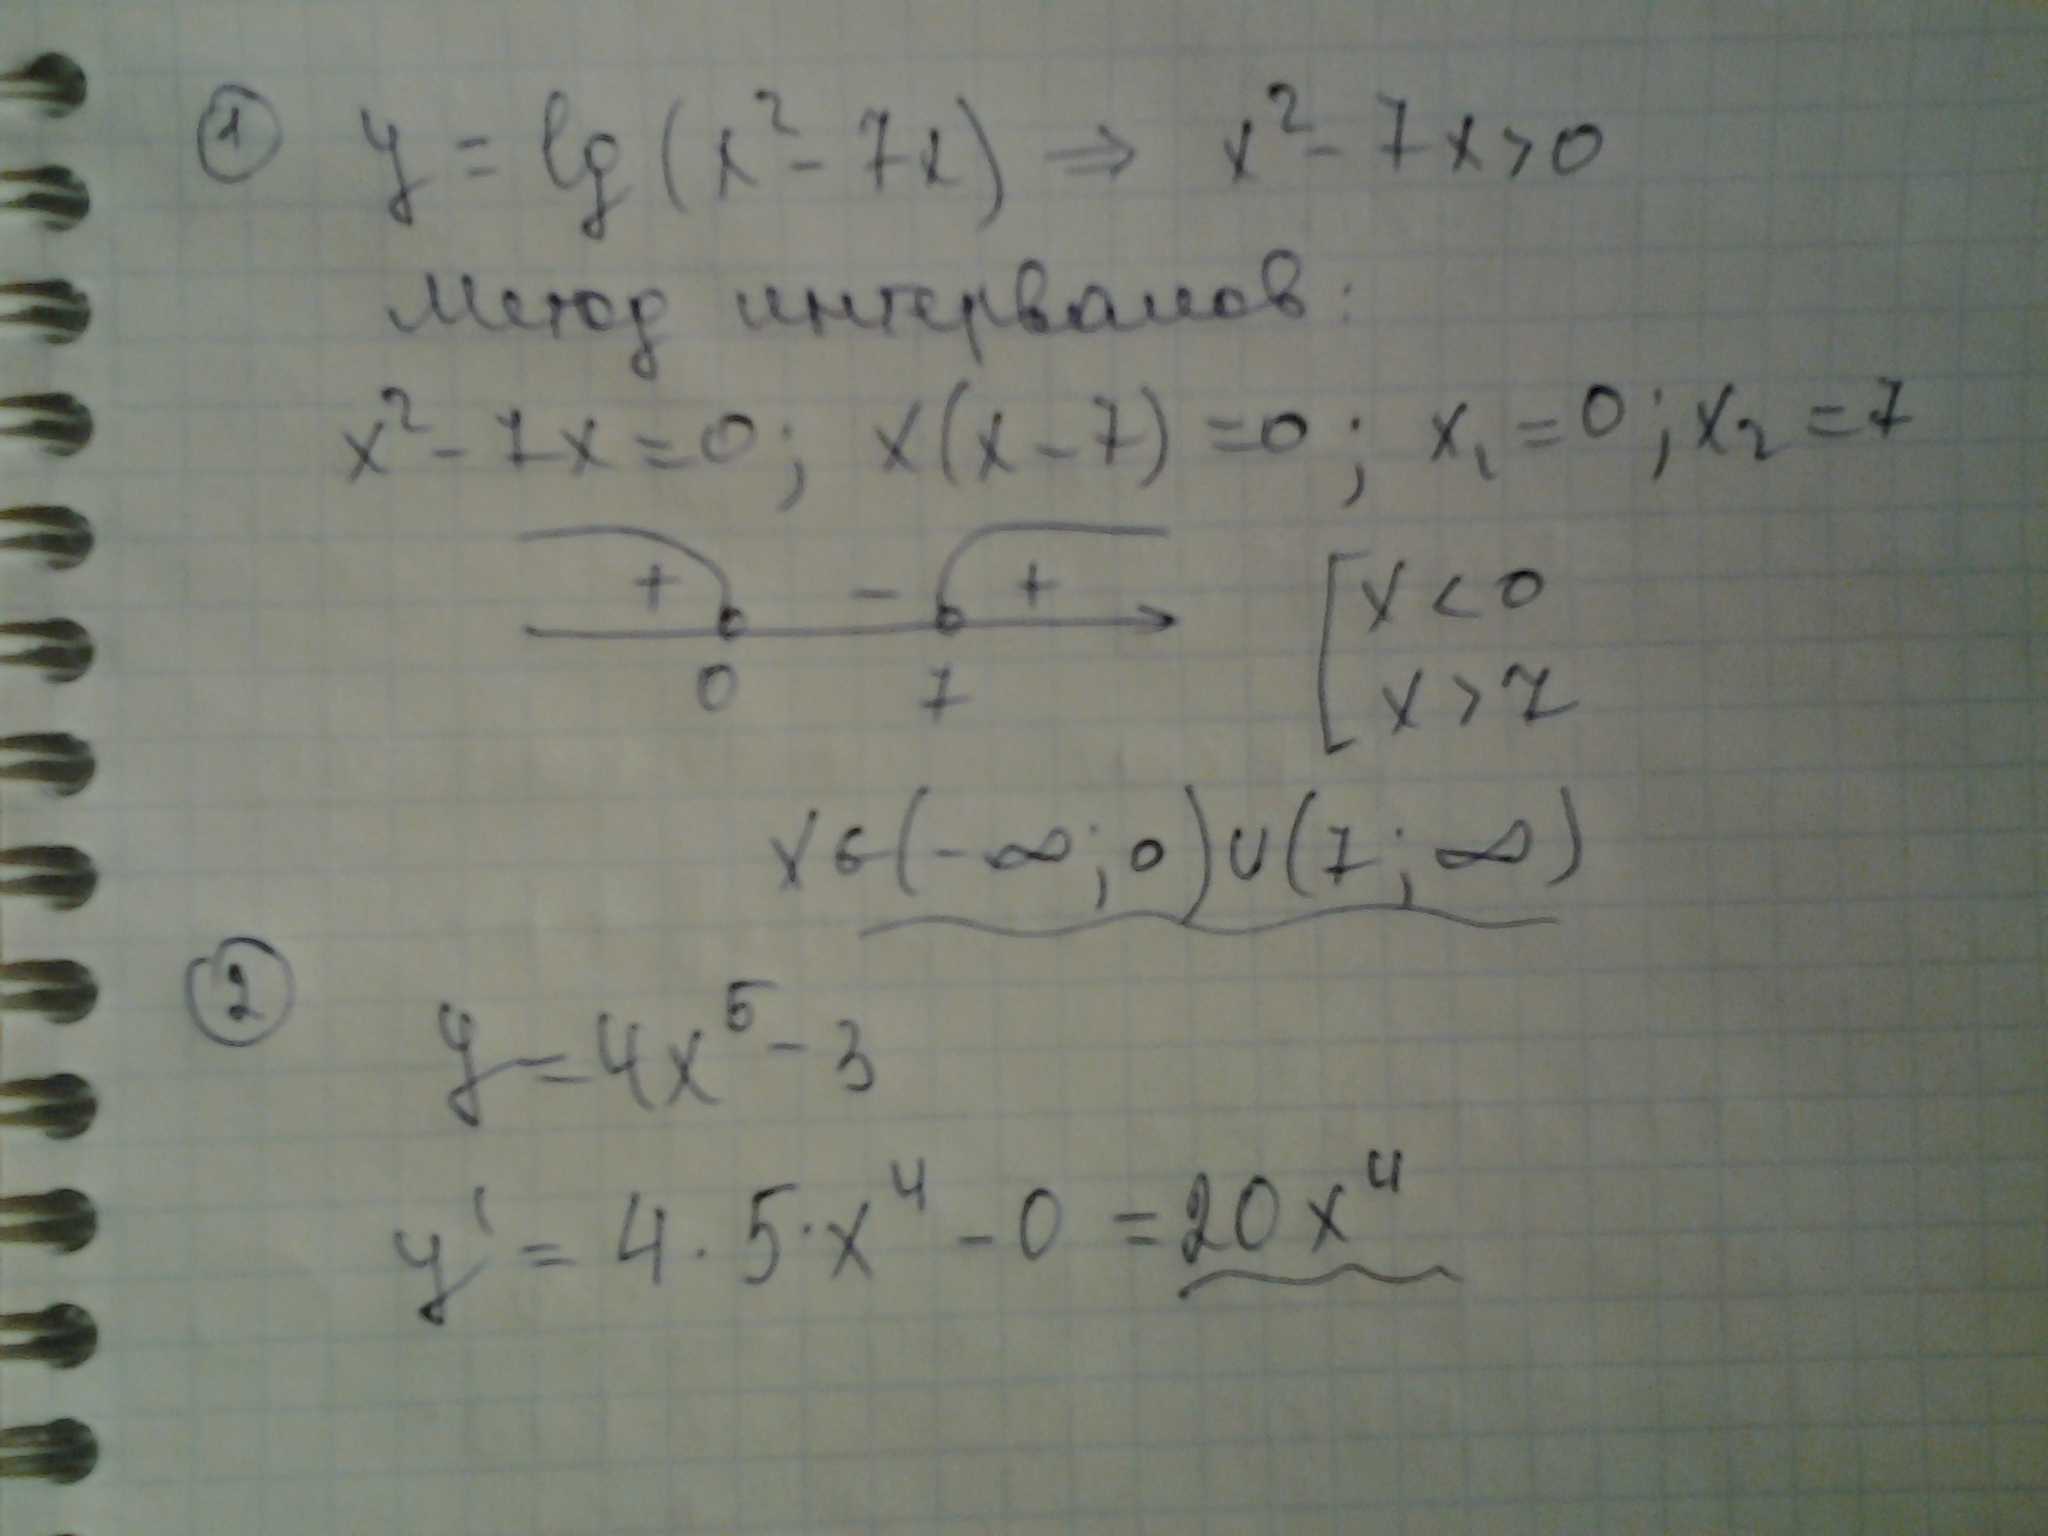 ① y = lg(x² - 7x) ⇒ x² - 7x > 0
Метод интервалов:
x² - 7x = 0; x(x - 7) = 0; x₁ = 0; x₂ = 7
+ - +
0 7
[ x < 0
x > 7
x ∈ (-∞; 0) ∪ (7; ∞)
② y = 4x⁵ - 3
y' = 4 · 5 · x⁴ - 0 = 20x⁴